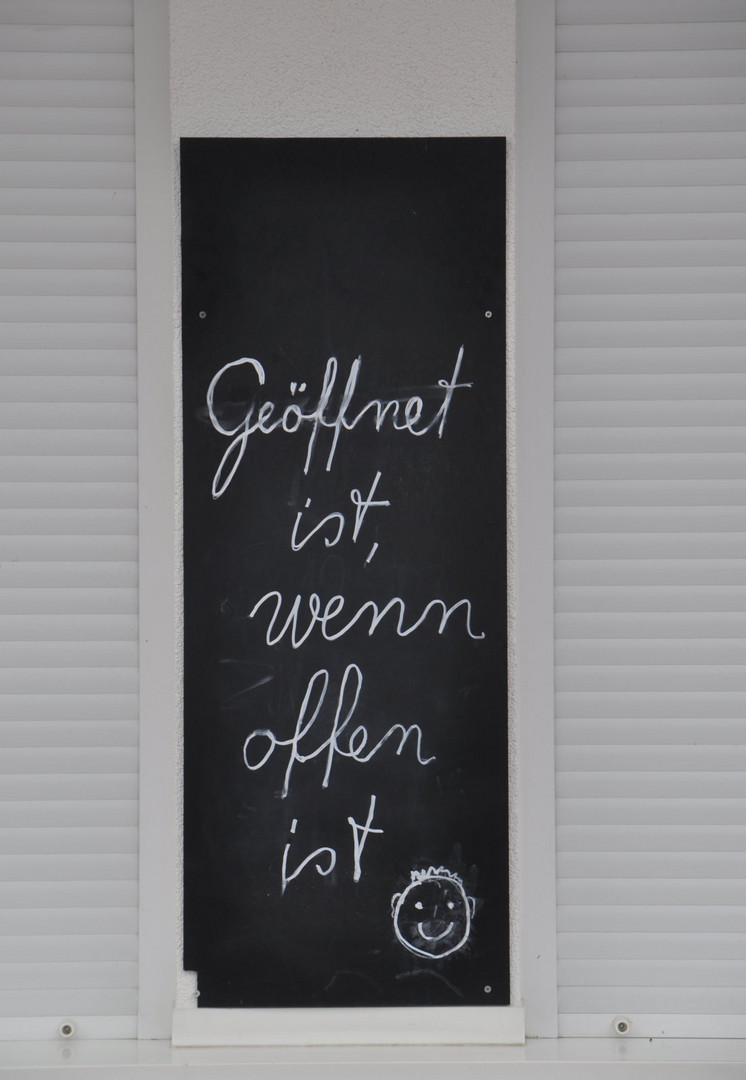 Geöffnet
ist,
wenn
offen
ist